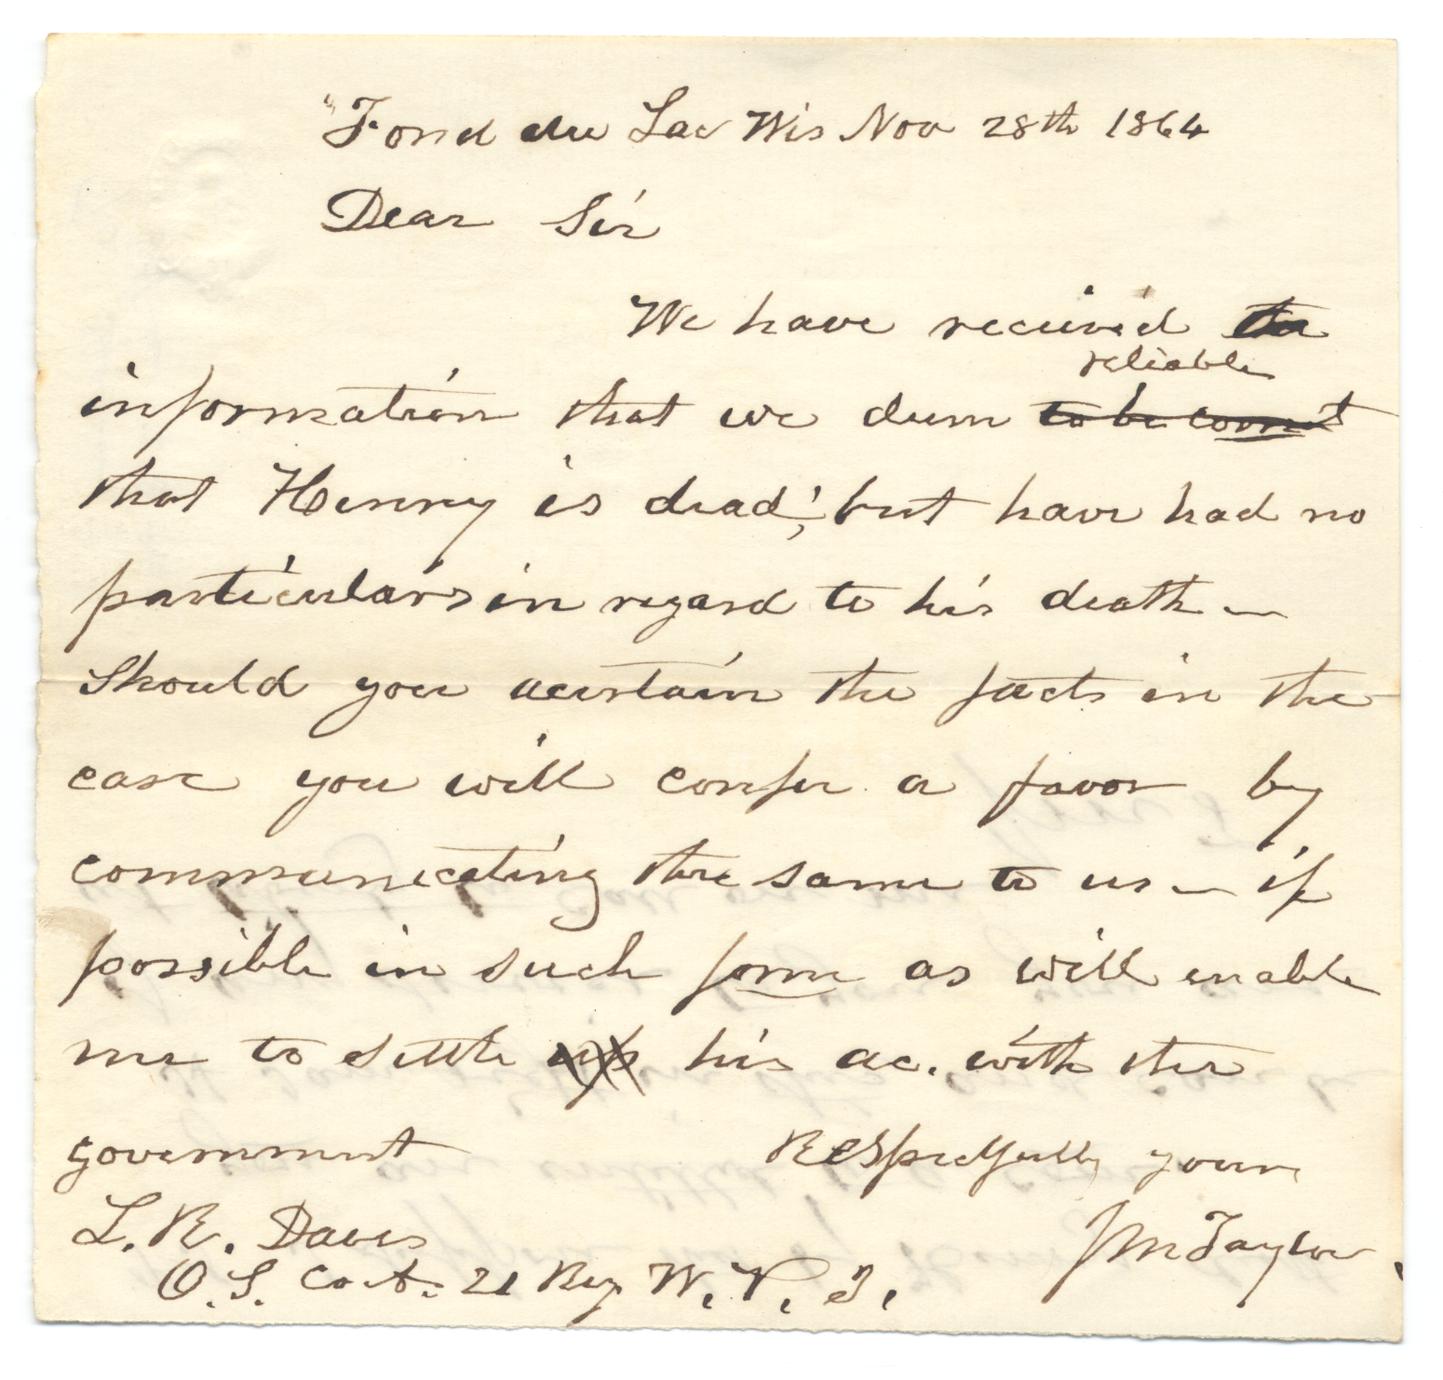 "Fond du Lac Wis Nov 28th 1864
Dear Sir
We have received the
reliable
information that we deem to be correct
that Henry is dead, but have had no
particulars in regard to his death —
Should you acertain the facts in the
case you will confer a favor by
communicating the same to us — if
possible in such form as will enable
me to settle up his ac. with the
government Respectfully yours
L. R. Davis J M Taylor
O. S. Co A. 21 Reg W. V. I.